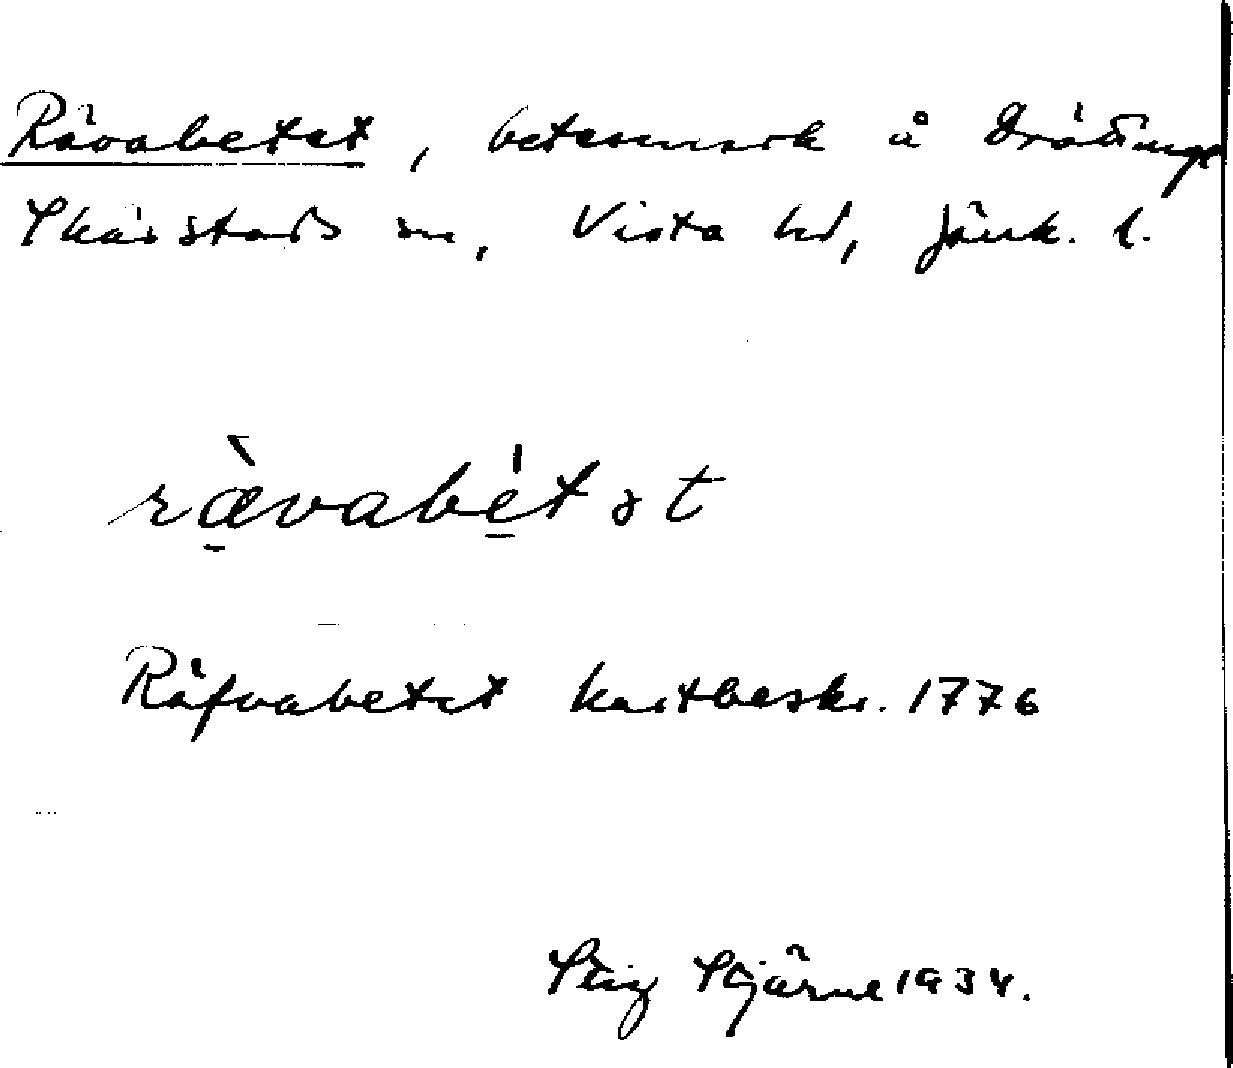 Rävabetet, betesmark å Drättinge
Skärstads sn, Vista hd, Jönk. l.
rævabetət
Räfvabetet kartbeskr. 1776
Stig Stjärne 1934.